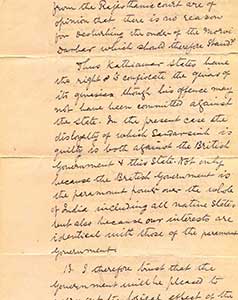 from the Rajasthanic court are of
opinion that there is no reason
for disturbing the order of the Morvi
darbar which should therefore stand.
Thus Kathiawar States have
the right to confiscate the giras of
its girassias though his offence may
not have been committed against
the state. In the present case the
disloyalty of which Savarsinh is
guilty is both against the British
Government & this State. Not only
because the British Government is
the paramount power over the whole
of India including all native States
but also because our interests are
identical with those of the paramount
Government.
13. I therefore trust that the
Government will be pleased to
effect of the